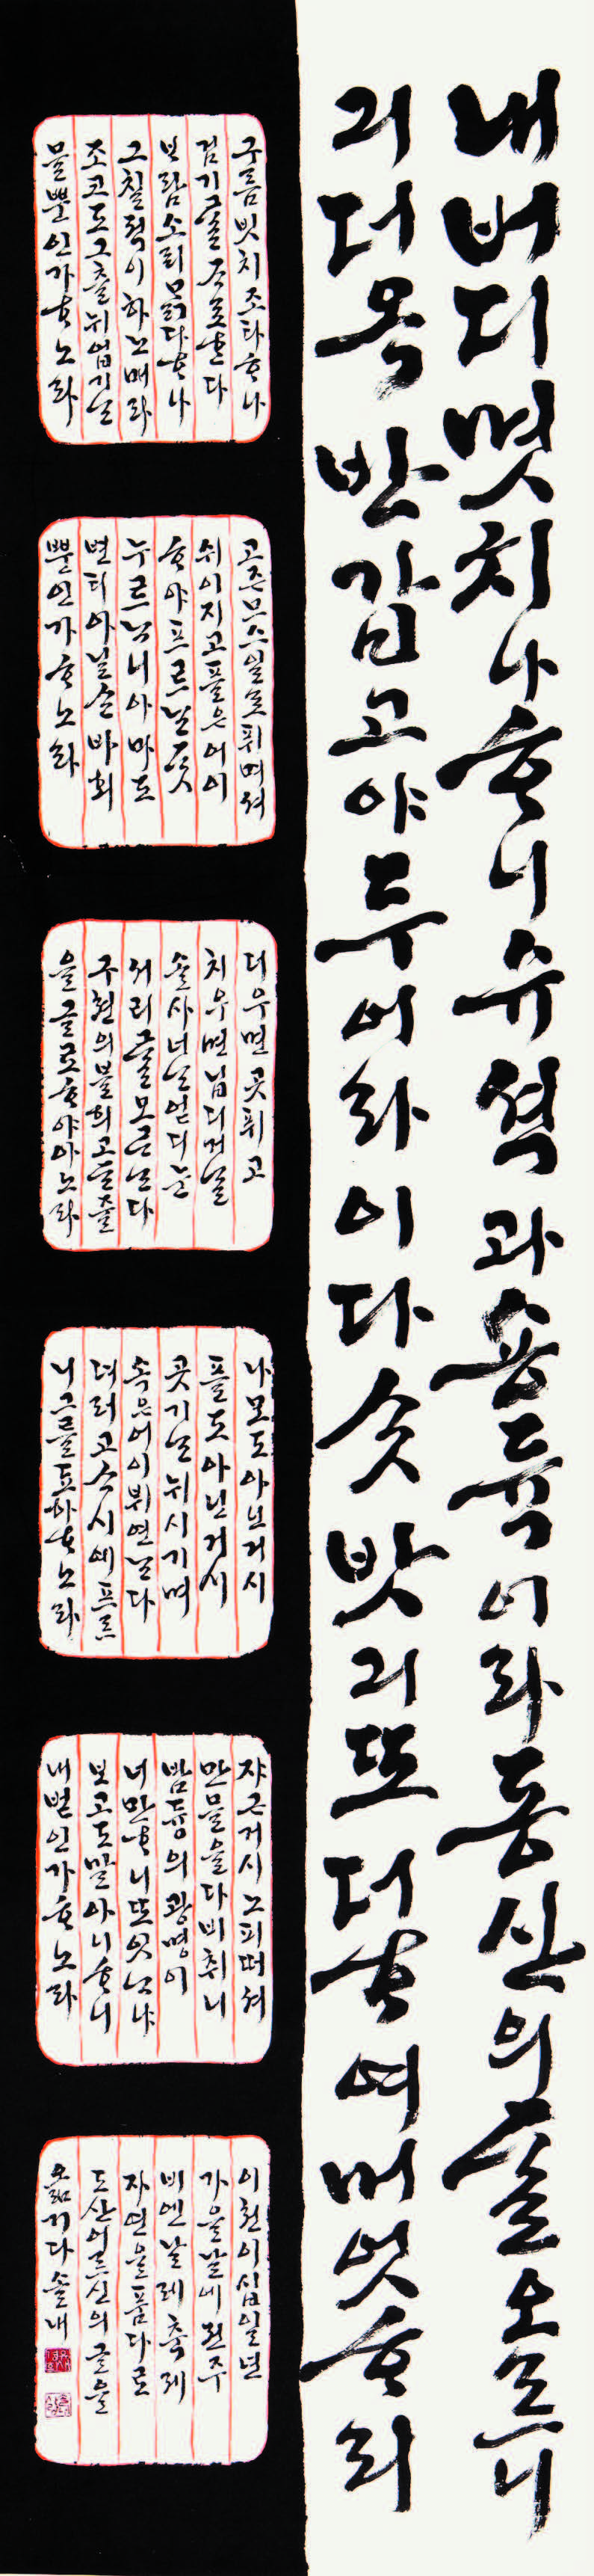 내버디몃치나ᄒᆞ니슈셕과숑듁이라동산의ᄃᆞᆯ오ᄅᆞ니
긔더옥반갑고야두어라이다ᄉᆞᆺ밧긔또더ᄒᆞ여머엇ᄒᆞ리
구룸빗치조타ᄒᆞ나
검기ᄅᆞᆯᄌᆞ로ᄒᆞᆫ다
ᄇᆞ람소리ᄆᆞᆰ다ᄒᆞ나
그칠적이하노매라
조코도그츨뉘업기ᄂᆞᆫ
믈뿐인가ᄒᆞ노라
고즌므스일로퓌며셔
쉬이지고플은어이
ᄒᆞ야프르ᄂᆞᆫᄃᆞᆺ
누르ᄂᆞ니아마도
변티아닐ᄉᆞᆫ바회
뿐인가ᄒᆞ노라
더우면곳퓌고
치우면닙디거ᄂᆞᆯ
솔사너ᄂᆞᆫ얻디눈
서리ᄅᆞᆯ모ᄅᆞᄂᆞᆫ다
구천의블희고ᄃᆞᆫ줄
을글로ᄒᆞ야아노라
나모도아닌거시
플도아닌거시
곳기ᄂᆞᆫ뉘시기며
속은어이뷔연ᄂᆞᆫ다
뎌러고ᄉᆞ시예프르
니그를됴하ᄒᆞ노라
쟈근거시노피떠셔
만믈을다비취니
밤듕의광명이
너만ᄒᆞ니또잇ᄂᆞ냐
보고도말아니ᄒᆞ니
내벋인가ᄒᆞ노라
이천이십일년
가을날에전주
비엔날레축제
자연을품다로
도산어르신의글을
옮기다솔내